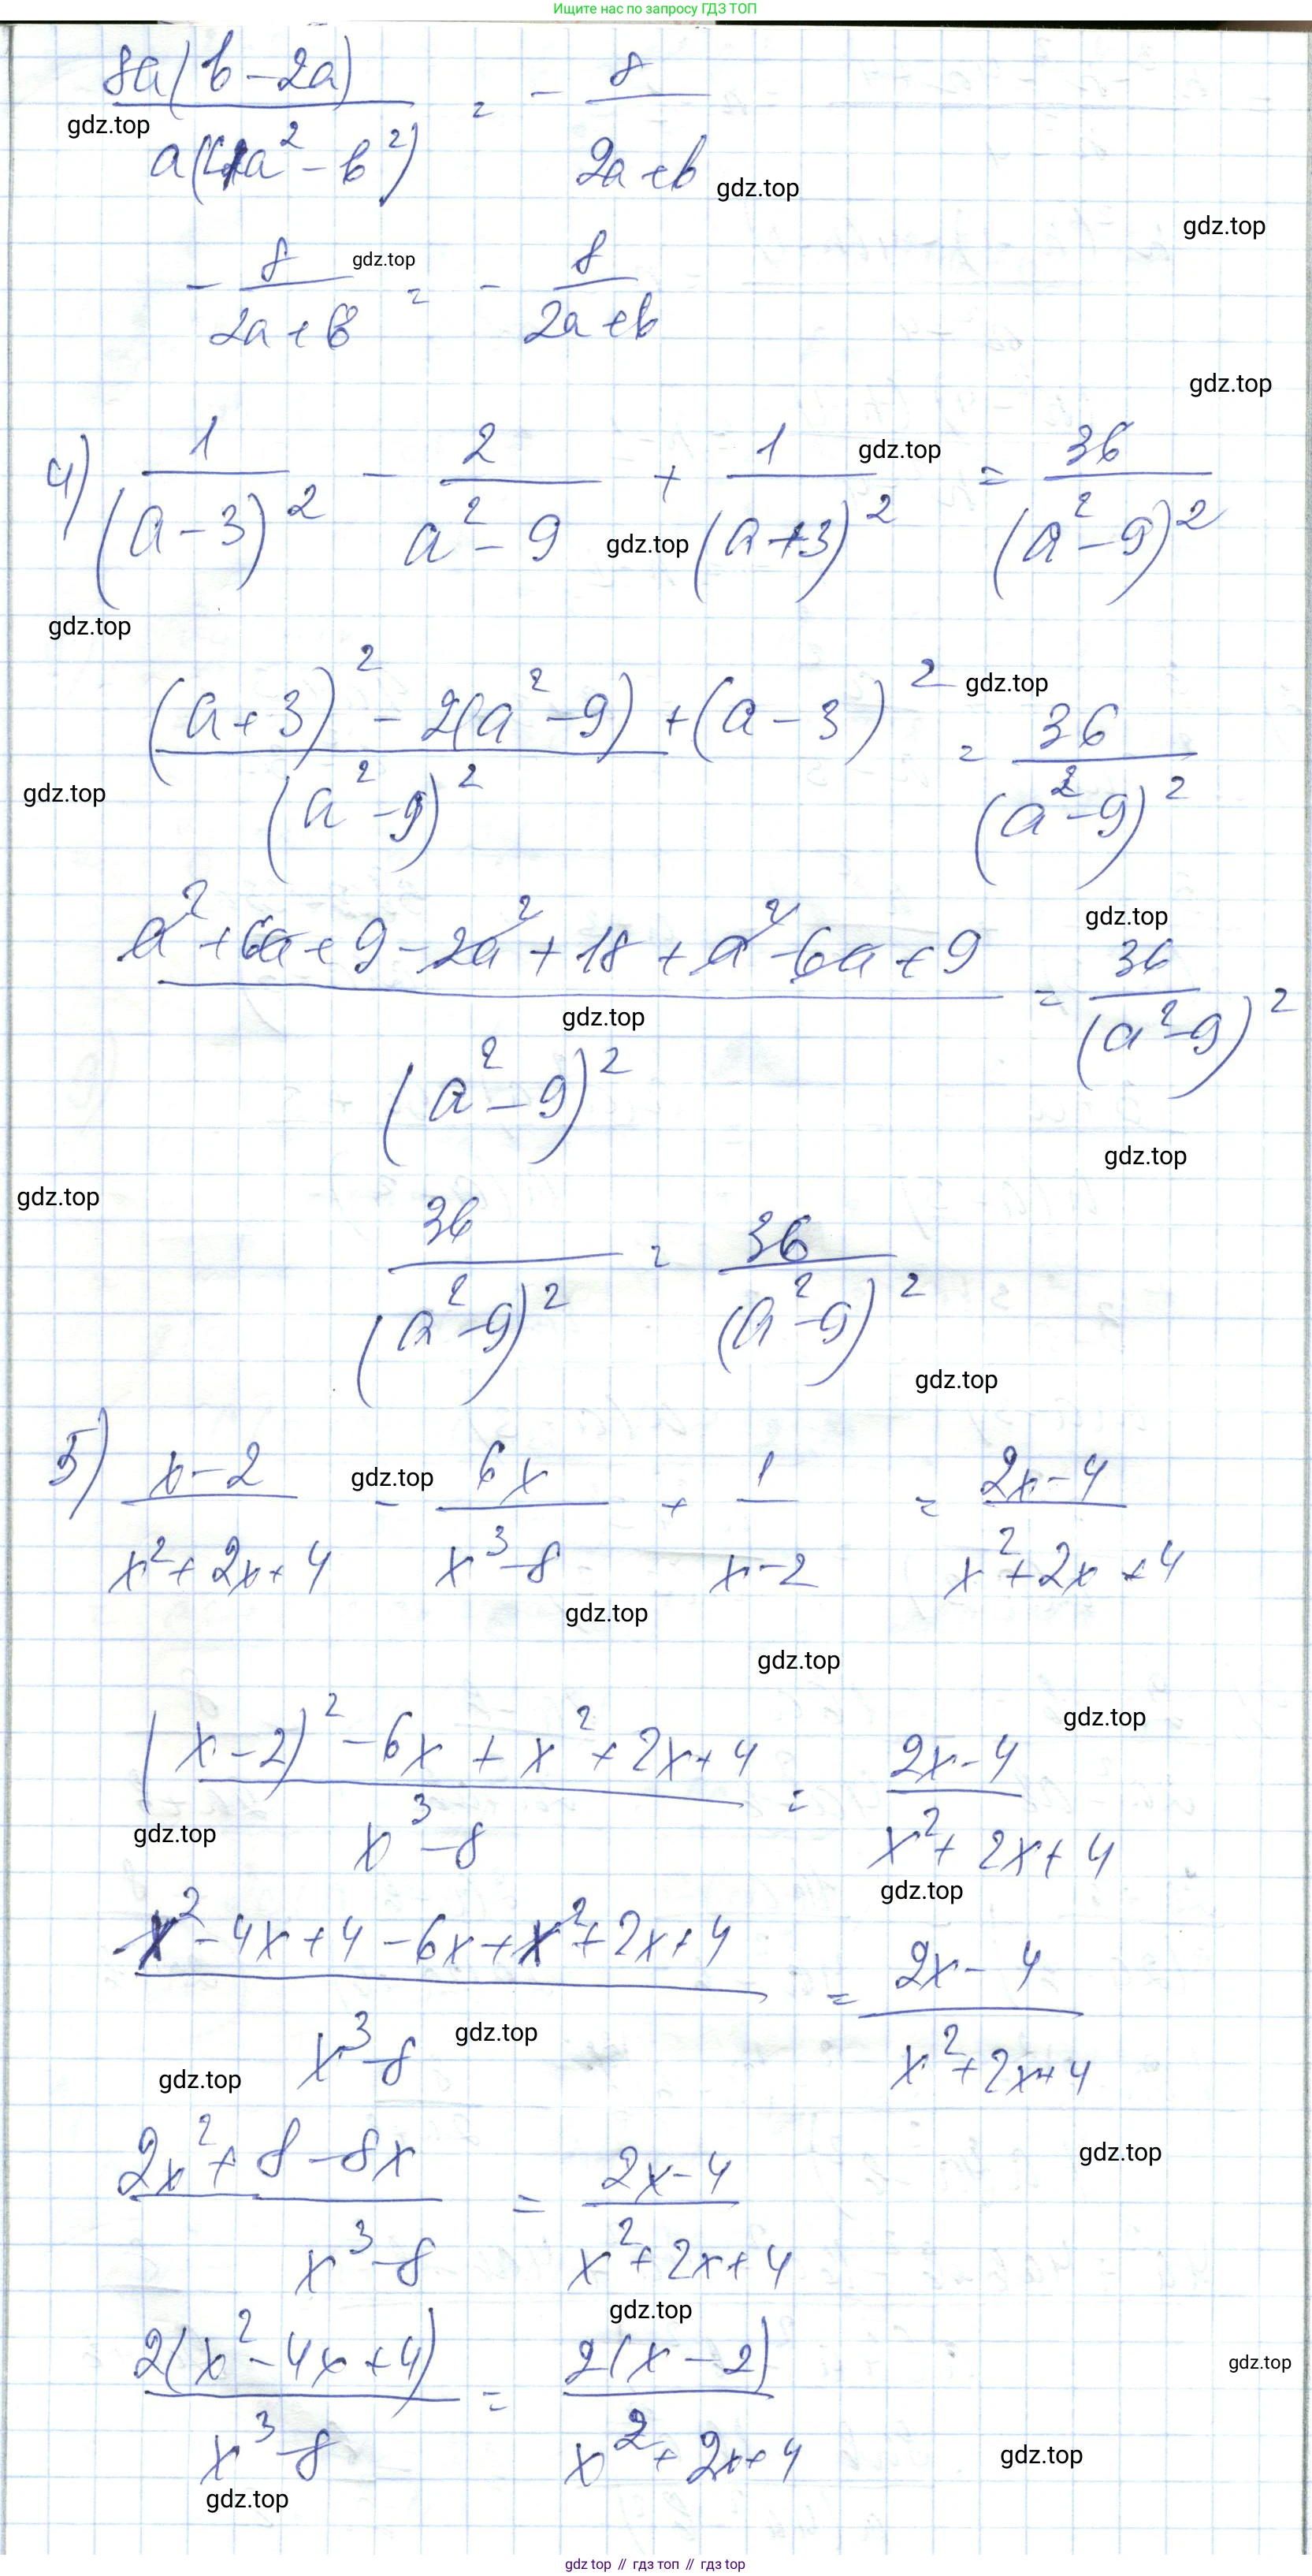 Ищите нас по запросу ГДЗ ТОП
8a(b-2a) / a(4a²-b²) = - 8 / 2a+b
gdz.top
gdz.top
gdz.top
- 8 / 2a+b = - 8 / 2a+b
gdz.top
gdz.top
4) 1 / (a-3)² - 2 / a²-9 + 1 / (a+3)² = 36 / (a²-9)²
gdz.top
gdz.top
gdz.top
(a+3)² - 2(a²-9) + (a-3)² / (a²-9)² = 36 / (a²-9)²
gdz.top
gdz.top
a²+6a+9-2a²+18+a²-6a+9 / (a²-9)² = 36 / (a²-9)²
gdz.top
gdz.top
gdz.top
gdz.top
36 / (a²-9)² = 36 / (a²-9)²
gdz.top
5) x-2 / x²+2x+4 - 6x / x³-8 + 1 / x-2 = 2x-4 / x²+2x+4
gdz.top
gdz.top
gdz.top
gdz.top
(x-2)²-6x+x²+2x+4 / x³-8 = 2x-4 / x²+2x+4
gdz.top
gdz.top
x²-4x+4-6x+x²+2x+4 / x³-8 = 2x-4 / x²+2x+4
gdz.top
gdz.top
2x²+8-8x / x³-8 = 2x-4 / x²+2x+4
gdz.top
gdz.top
2(x²-4x+4) / x³-8 = 2(x-2) / x²+2x+4
gdz.top
gdz.top
gdz.top
gdz top // гдз топ // gdz top